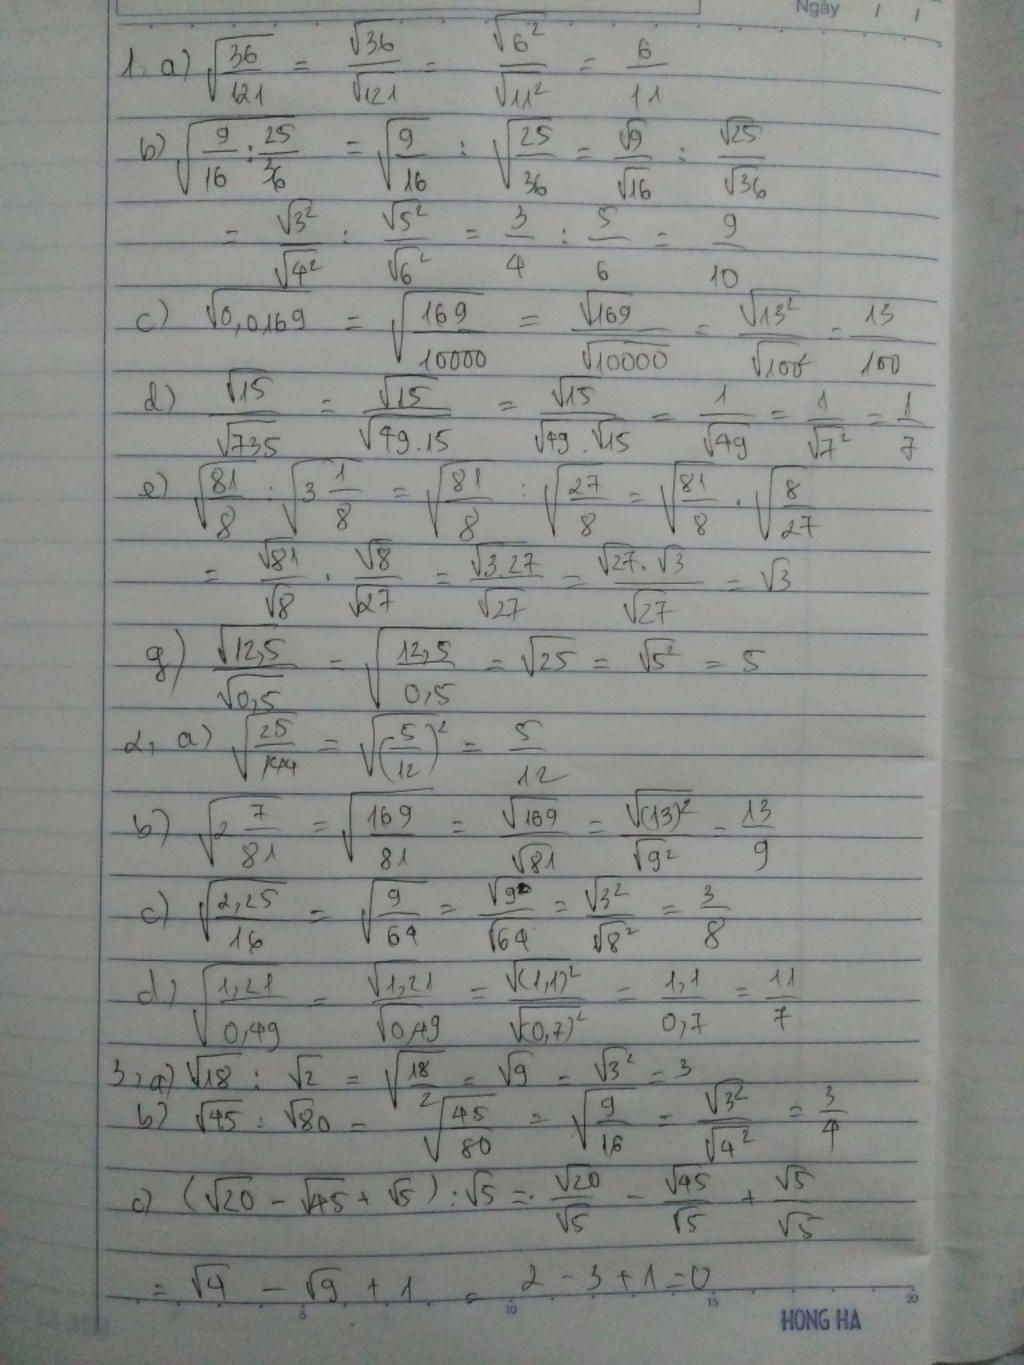 Ngày / /
1, a) √(36/121) = √36/√121 = √6²/√11² = 6/11
b) √(9/16 : 25/36) = √(9/16) : √(25/36) = √9/√16 : √25/√36
= √3²/√4² : √5²/√6² = 3/4 : 5/6 = 9/10
c) √0,0169 = √(169/10000) = √169/√10000 = √13²/√100² = 13/100
d) √15/√735 = √15/√49.15 = √15/√49 . √15 = 1/√49 = 1/√7² = 1/7
e) √(81/8) : √(3 1/8) = √(81/8) : √(27/8) = √(81/8) . √(8/27)
= √81/√8 . √8/√27 = √3.27/√27 = √27 . √3/√27 = √3
g) √12,5/√0,5 = √(12,5/0,5) = √25 = √5² = 5
2, a) √(25/144) = √(5/12)² = 5/12
b) √(2 7/81) = √(169/81) = √169/√81 = √(13)²/√9² = 13/9
c) √(2,25/16) = √(9/64) = √9/√64 = √3²/√8² = 3/8
d) √(1,21/0,49) = √1,21/√0,49 = √(1,1)²/√(0,7)² = 1,1/0,7 = 11/7
3, a) √18 : √2 = √(18/2) = √9 = √3² = 3
b) √45 : √80 = √(45/80) = √(9/16) = √3²/√4² = 3/4
c) (√20 - √45 + √5) : √5 = √20/√5 - √45/√5 + √5/√5
= √4 - √9 + 1 = 2 - 3 + 1 = 0
5 10 15 20
HONG HA